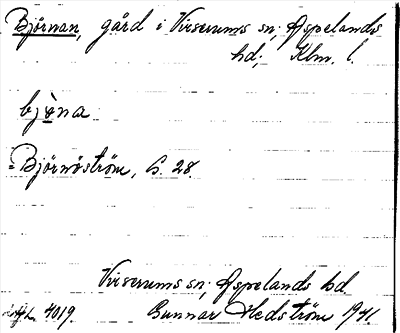 Björnan, gård i Virserums sn; Aspelands
hd; Klm. l.
bjö̱na
Björnöström, G. 28.
Virserums sn; Aspelands hd
4019. Gunnar Hedström 1941